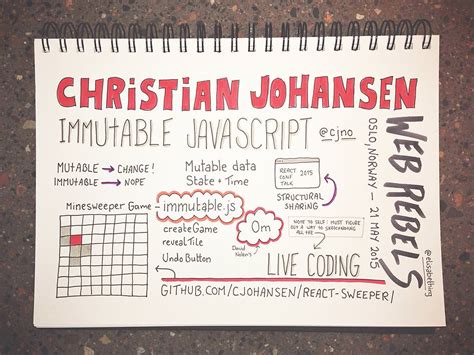 CHRISTIAN JOHANSEN
IMMUTABLE JAVASCRIPT @cjno
WEB REBELS
OSLO, NORWAY — 21 MAY 2015
@elisabethirg
MUTABLE → CHANGE!
IMMUTABLE → NOPE
Mutable data
State + Time
REACT
CONF
TALK 2015
STRUCTURAL
SHARING
Minesweeper Game - immutable.js
createGame
revealTile
Undo Button
Om
David
Nolen's
NOTE TO SELF: MUST FIGURE
OUT A WAY TO
LIVE CODING
GITHUB.COM/CJOHANSEN/REACT-SWEEPER/